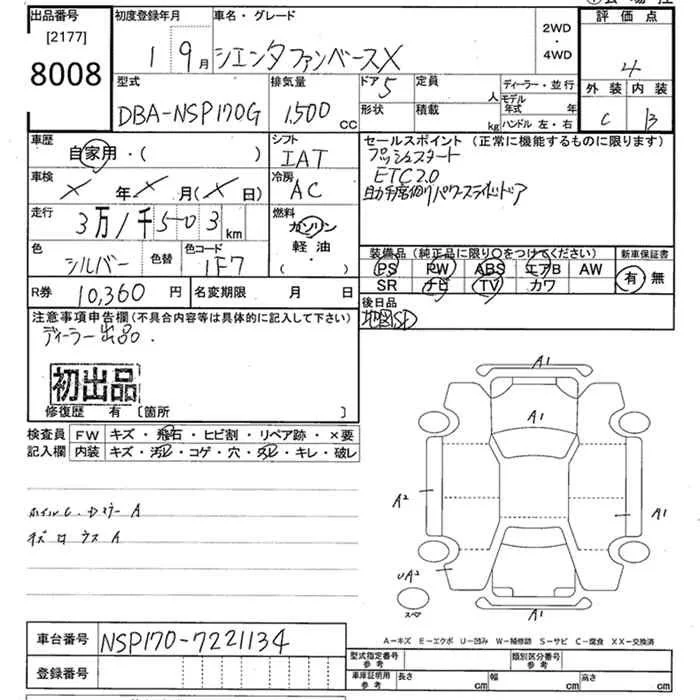 出品番号 初度登録年月 車名・グレード 2WD・4WD 評価点
[2177]
8008 1 9月 シエンタファンベースX 4
型式 排気量 ドア 5 定員 人 ディーラー・並行 外装 内装
DBA-NSP170G 1,500 cc 形状 積載 kg モデル年式 年 C B
ハンドル 左・右
車歴 シフト セールスポイント (正常に機能するものに限ります)
自家用・( ) IAT プッシュスタート
車検 冷房 ETC2.0
× 年 × 月 ( × 日) AC 助手席側パワースライドドア
走行 燃料
3万1千503km ガソリン
色 色替 色コード 軽油・( ) 装備品 (純正品に限り○をつけてください) 新車保証書
シルバー 1F7 PS PW ABS エアB AW 有・無
SR ナビ TV カワ
R券 10,360円 名変期限 月 日 後日品
注意事項申告欄(不具合内容等は具体的に記入して下さい) 地図SD
ディーラー出品.
初出品
修復歴 有 [箇所 ]
検査員 FW キズ・飛石・ヒビ割・リペア跡・×要
記入欄 内装 キズ・汚レ・コゲ・穴・スレ・キレ・破レ
A1
A1
A2 A1
ホイルC.
UA2
スペア A1
A-キズ E-エクボ U-凹み W-補修跡 S-サビ C-腐食 XX-交換済
車台番号 NSP170-7221134
型式指定番号 参考 類別区分番号 参考
登録番号 車庫証明用 参考 長さ cm 幅 cm 高さ cm